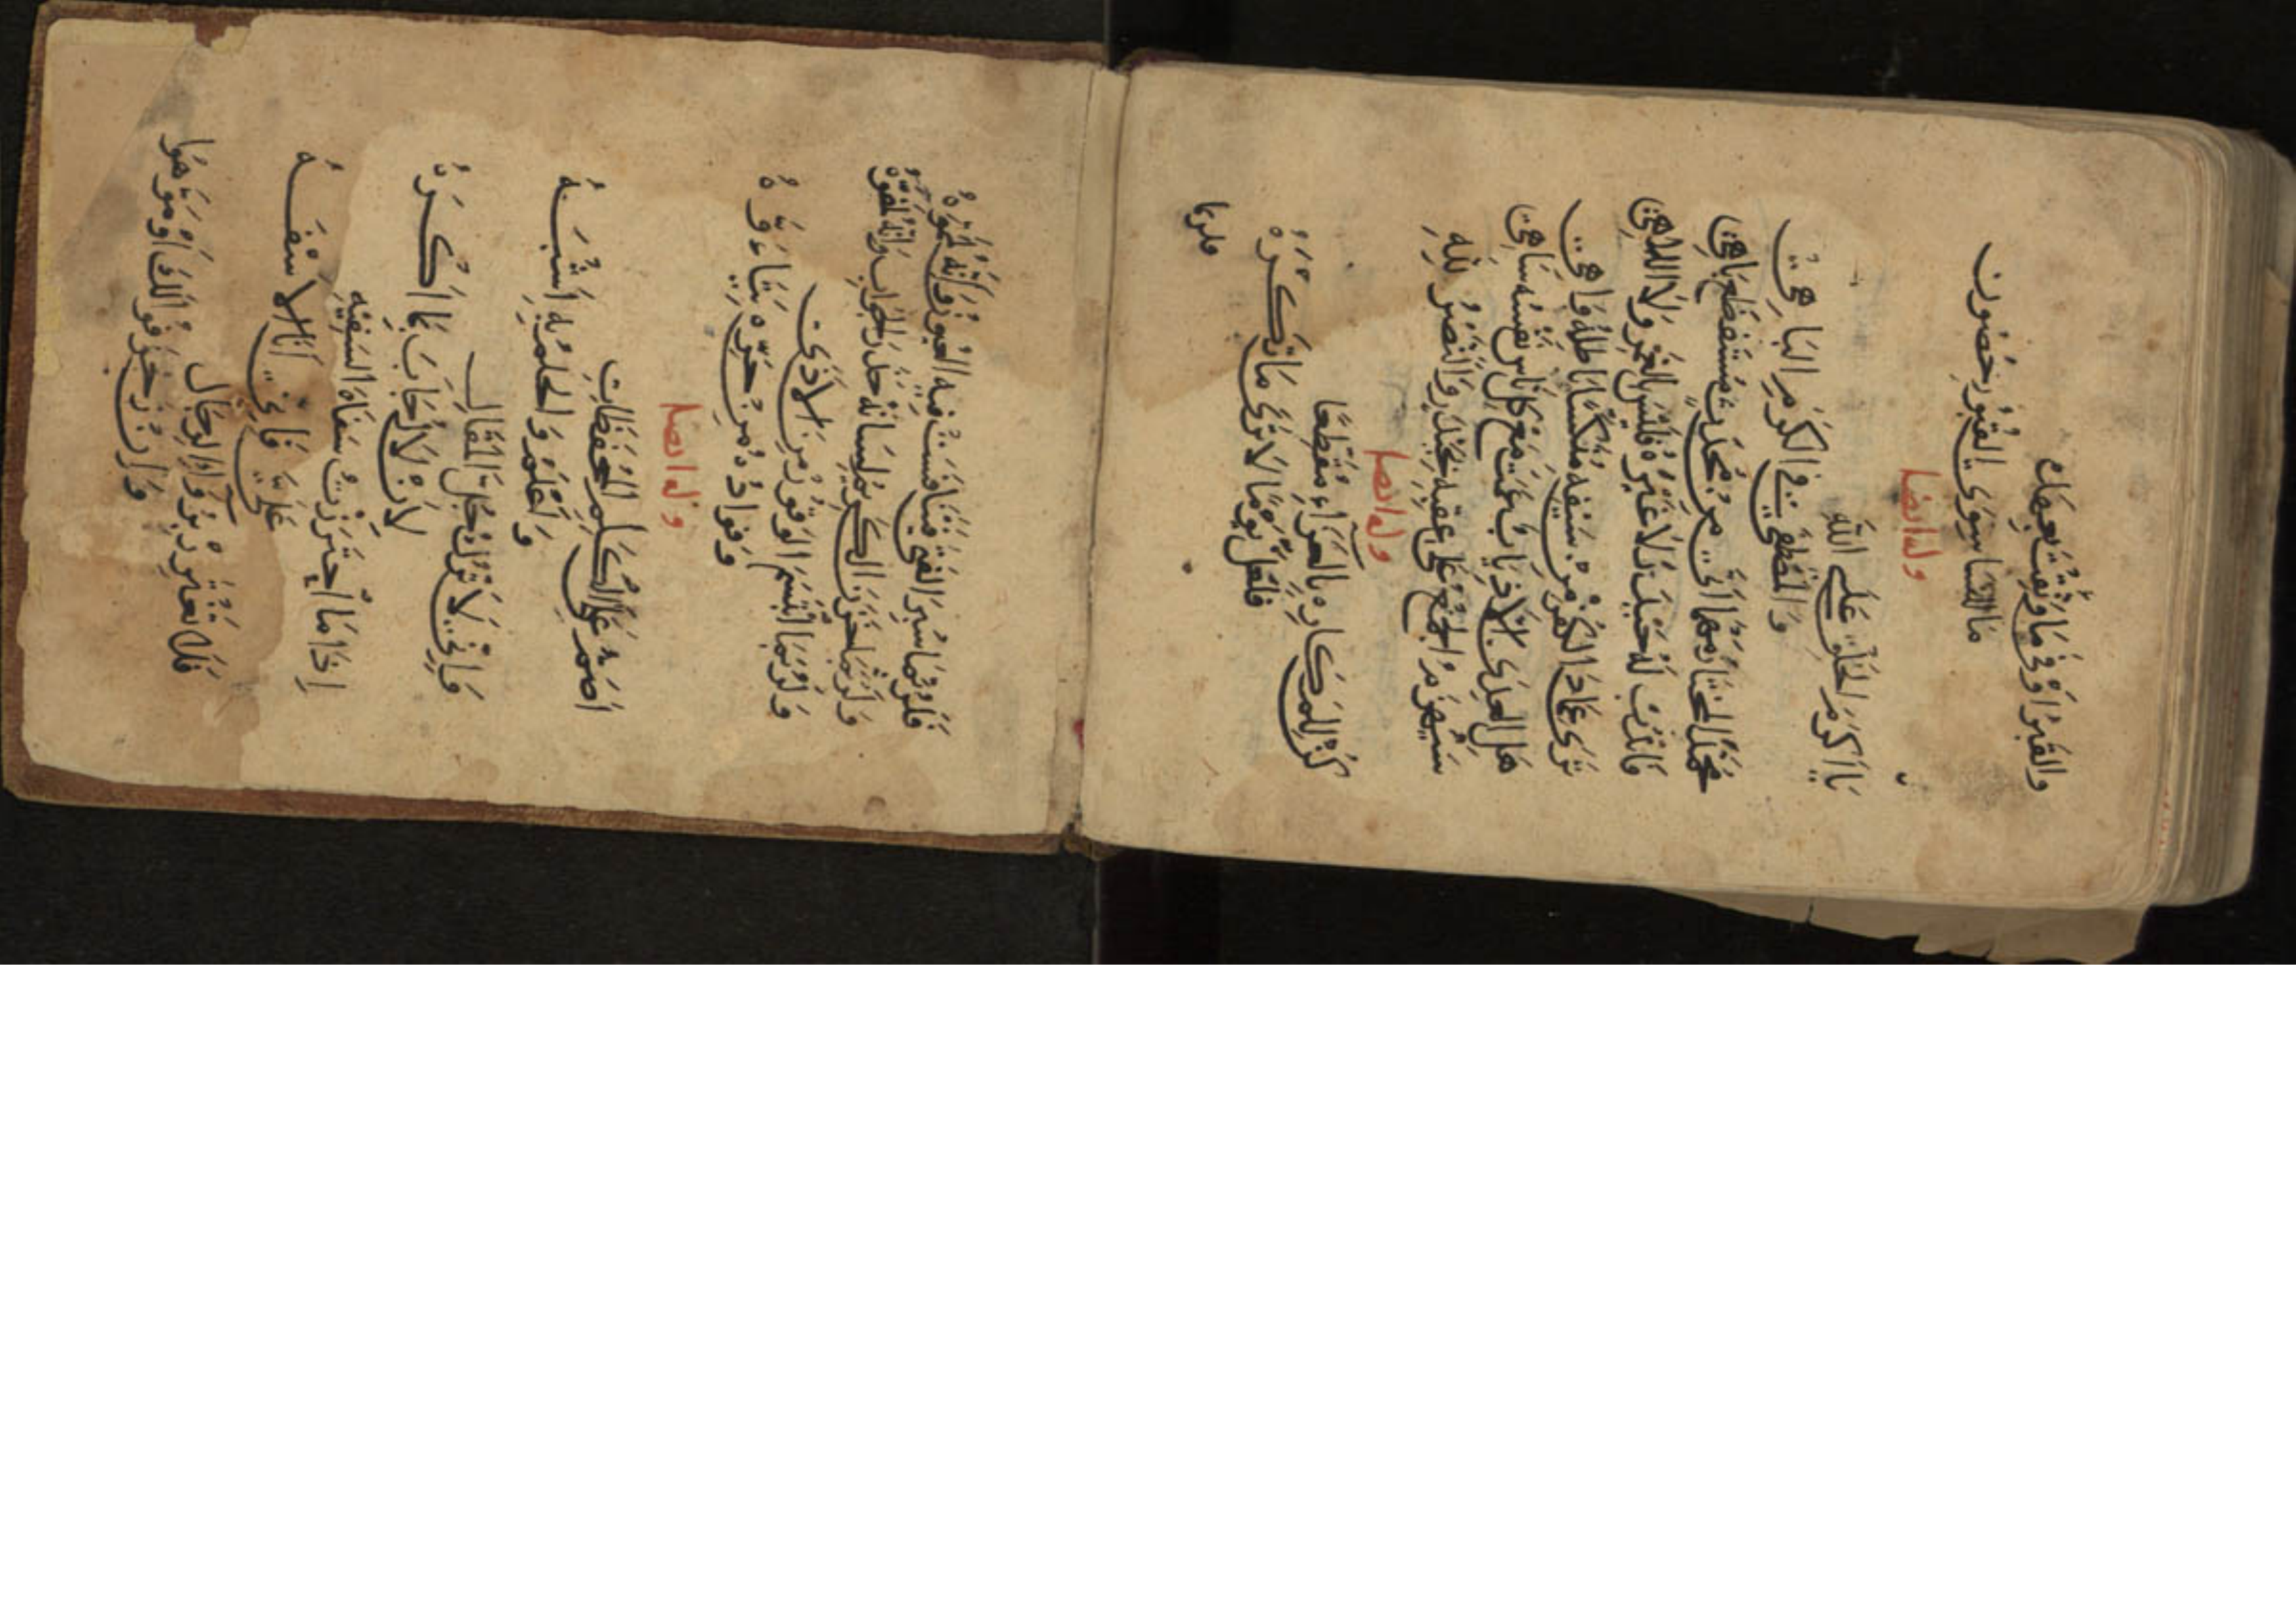 والقبر اوفى ما وثقت بعهده
ما للنسا سوى القبور حصون
وله ايضا
يا اكرم الخلق على الله
والمصطفى في الكرم الباهي
محمد المختار مهما اتى من محدث مستفظع باهي
فاندب له حيدر لا غيره فليس بالغمر ولا اللاهي
ترى عماد الكفر من سيفه منكسا باطله واهي
هل العدى الا ذياب عوت مع كل ناس نفسه ساهي
سيهزم الجمع على عقبه بحيدر والنصر لله
وله ايضا
كن للمكاره بالعزآء مقطعا
فلعل يوما لا ترى ما تكره
فلربما
فلربما ستر الفتى فتنافست فيه العيون وانه لمموه
ولربما خزن الكريم لسانه حذر الجواب وانه لمفوه
ولربما ابتسم الوقور من الاذى
وفواده من حره يتاوه
وله ايضا
اصم عن الكلم المحفظات
واحلم والحلم بي اشبه
واني لاترك جل المقال
لان لا اجاب بما اكره
اذا ما اجتررت سفاه السفيه
علي فاني انا الاسفه
فلا تغترر بروآء الرجال
وان زخرفوا لك او موهوا